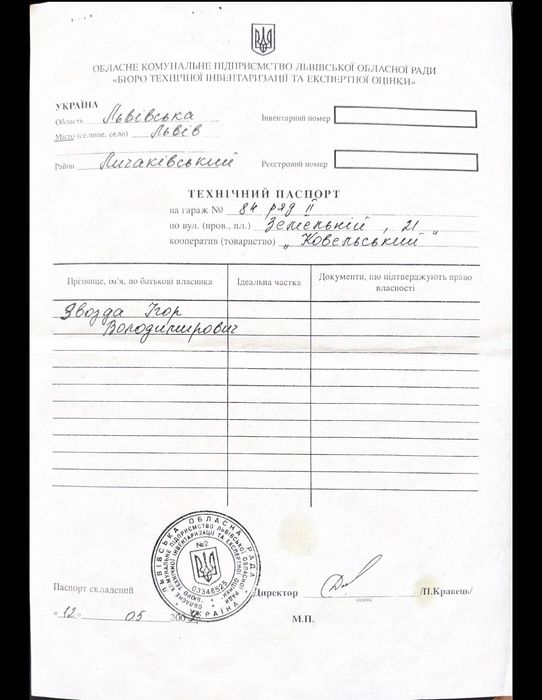 ОБЛАСНЕ КОМУНАЛЬНЕ ПІДПРИЄМСТВО ЛЬВІВСЬКОЇ ОБЛАСНОЇ РАДИ
«БЮРО ТЕХНІЧНОЇ ІНВЕНТАРИЗАЦІЇ ТА ЕКСПЕРТНОЇ ОЦІНКИ»
УКРАЇНА
Область Львівська Інвентарний номер
Місто (селище, село) Львів
Район Личаківський Реєстровий номер
ТЕХНІЧНИЙ ПАСПОРТ
на гараж № 84 ряд II
по вул. (пров., пл.) Земельній, 21
кооператив (товариство) „Ковельський"
Прізвище, ім'я, по батькові власника Ідеальна частка Документи, що підтверджують право власності
Явозда Ігор
Володимирович
ЛЬВІВСЬКА ОБЛАСНА РАДА
УКРАЇНА
№2
03348525
Паспорт складений Директор /П.Кравець/
підпис
"12" 05 200 р. М.П.